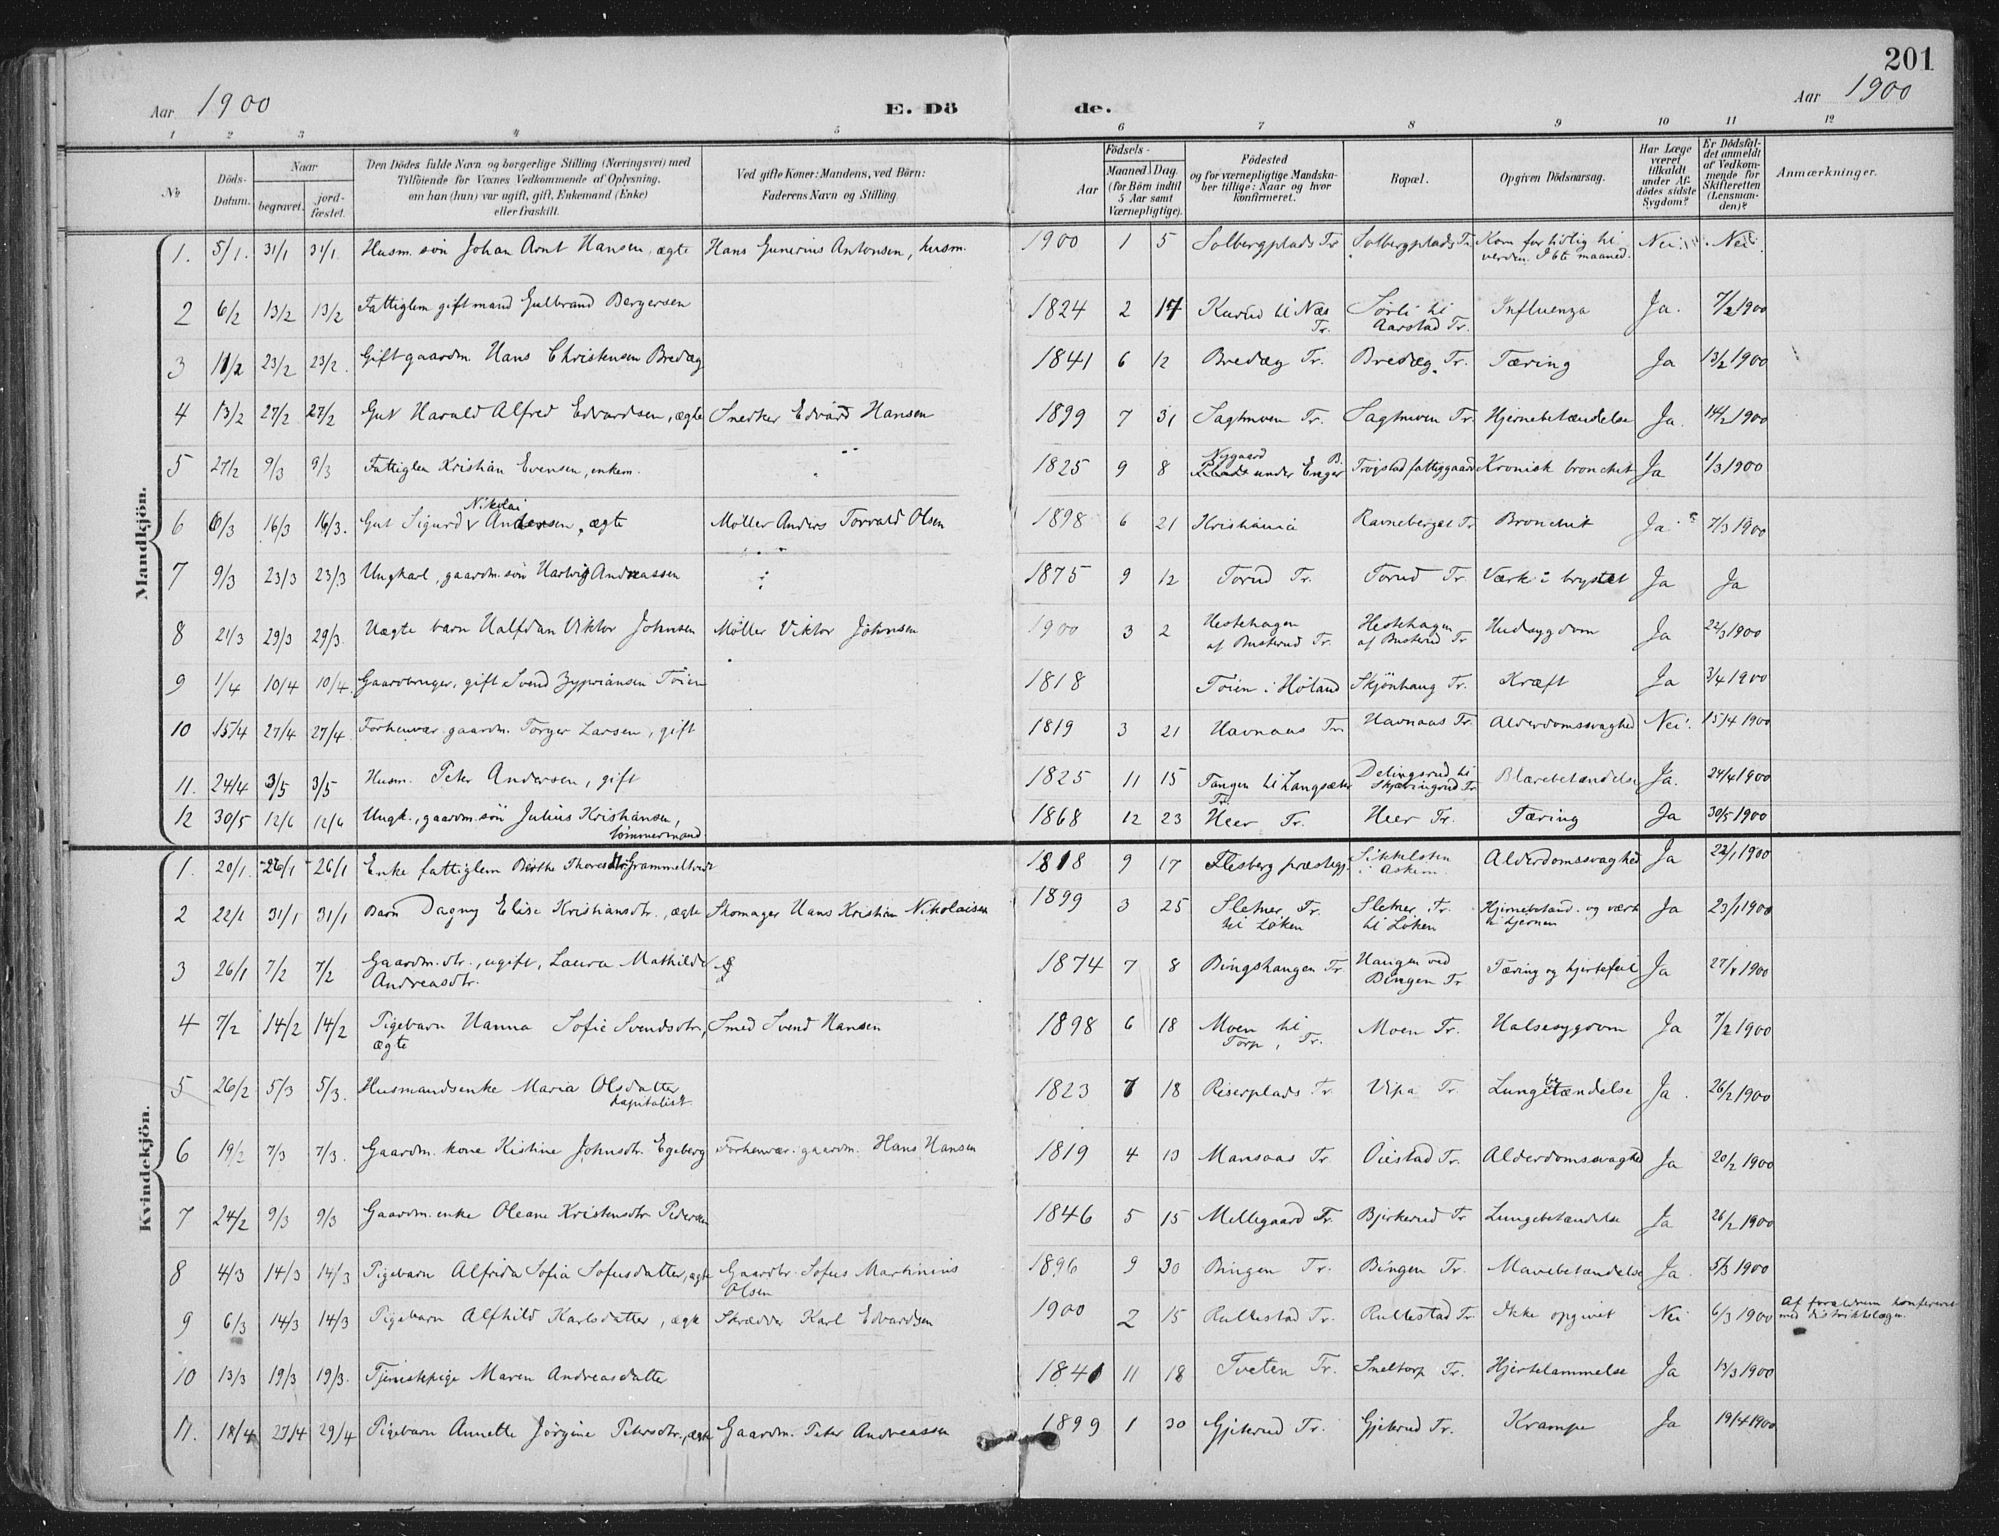 201
Aar 1900 E. Dö de. Aar 1900
1 2 3 4 5 6 7 8 9 10 11 12
No
Döds-Datum.
Naar begravet. jordfæstet.
Den Dödes fulde Navn og borgerlige Stilling (Næringsvei) med Tilföiende for Voxnes Vedkommende af Oplysning, om han (hun) var ugift, gift, Enkemand (Enke) eller fraskilt.
Ved gifte Koner: Mandens, ved Börn: Faderens Navn og Stilling.
Födsels- Aar Maaned Dag. (for Börn indtil 5 Aar samt Værnepligtige).
Födested og for værnepligtige Mandskaber tillige: Naar og hvor konfirmeret.
Bopæl.
Opgiven Dödsaarsag.
Har Læge været tilkaldt under Afdödes sidste Sygdom?
Er Dödsfaldet anmeldt af Vedkommende for Skifteretten (Lensmanden)?
Anmærkninger.
Mandkjön.
1. 5/1. 31/1 31/1. Husm. sön Johan Arnt Hansen, ægte Hans Gunerius Antonsen, husm. 1900 1 5 Solbergplads Tr. Solbergplads Tr. Kom for tidlig til verden. I 6te maaned. Nei. Nei.
2 6/2 13/2 13/2 Fattiglem gift mand Gulbrand Bergersen 1824 2 17 Kurud til Næs Tr. Sørli til Aarstad Tr. Influenza Ja. 7/2 1900
3 11/2 23/2 23/2. Gift gaardm. Hans Christensen Bredæg 1841 6 12 Bredæg Tr. Bredæg. Tr. Tæring Ja 13/2 1900
4 13/2 27/2 27/2 Gut Harald Alfred Edvardsen, ægte Snedker Edvard Hansen 1899 7 31 Sagtmoen Tr. Sagtmoen Tr. Hjernebetændelse Ja. 14/2 1900
5 27/2 9/3 9/3 Fattiglem Kristian Evensen, enkem. 1825 9 8 Nygaard under Enger Trøgstad fattiggaard Kronisk bronchit Ja 1/3 1900
6 6/3 16/3 16/3. Gut Sigurd Nikolai Andersen, ægte Møller Anders Torvald Olsen 1898 6 21 Kristiania Ravneberget Tr. Bronchit Ja. 7/3 1900
7 9/3 23/3 23/3 Ungkarl, gaardm. sön Hartvig Andreassen 1875 9 12 Torud Tr. Torud Tr. Værk i brystet Ja Ja
8 21/3 29/3 29/3. Uægte barn Halfdan Viktor Johnsen Møller Viktor Johnsen 1900 3 2 Hestehagen af Busterud Tr. Hestehagen af Busterud Tr Hudsygdom Ja 22/3 1900
9 1/4 10/4 10/4. Gaardbruger, gift Svend Zypriansen Töien 1818 Töien i Höland Skjönhaug Tr. Kræft Ja 3/4 1900
10 15/4 27/4 27/4. Forhenvær. gaardm. Torger Larsen, gift 1819 3 21 Havnaas Tr. Havnaas Tr. Alderdomssvaghed Nei. 15/4 1900
11. 24/4 3/5 3/5 Husm. Peter Andersen, gift 1825 11 15 Tangen til Langsæter Tr. Delingsrud til Skjæringrud Tr Blærebetændelse Ja. 24/4 1900
12 30/5 12/6 12/6 Ungk., gaardm. sön Julius Kristiansen, tömmermand 1868 12 23 Heer Tr. Heer Tr. Tæring Ja 30/5 1900
Kvindekjön.
1. 20/1. 26/1 26/1 Enke fattiglem Berthe Thoresdtr. Grammeltvedt 1818 9 17 Flesberg præstegj. Sikkelsten i Askim. Alderdomssvaghed Ja 22/1 1900
2 22/1 31/1 31/1 Barn Dagny Elise Kristiansdtr., ægte Skomager Hans Kristian Nikolaisen 1899 3 25 Sletner Tr. til Löken Sletner Tr. til Löken Hjernebetænd. og værk i hjernen Ja 23/1 1900
3 26/1 7/2 7/2 Gaardm. dtr., ugift, Laura Mathilde Andreasdtr. 1874 7 8 Bingshaugen Tr. Haugen ved Bingen Tr. Tæring og hjertefeil Ja 27/1 1900
4 7/2 14/2 14/2 Pigebarn Hanna Sofie Svendsdtr., ægte Smed Svend Hansen 1898 6 18 Moen til Torp, Tr. Moen Tr. Halssygdom Ja 7/2 1900
5 26/2 5/3 5/3. Husmandsenke Maria Olsdatter kapitalist. 1823 7 18 Riserplads Tr. Vipa Tr. Lungebetændelse Ja. 26/2 1900
6 19/2 7/3 7/3. Gaardm. kone Kistine Johnsdtr. Egeberg Forhenvær. gaardm. Hans Hansen 1819 4 13 Mansaas Tr. Öiestad Tr. Alderdomssvaghed Ja 20/2 1900
7 24/2 9/3 9/3 Gaardm. enke Oleane Kristensdtr. Pedersen 1846 5 15 Mellegaard Tr. Bjerkerud Tr Lungebetændelse Ja 26/2 1900
8 4/3 14/3 14/3 Pigebarn Alfrida Sofia Sofusdatter, ægte Gaardbr. Sofus Martinius Olsen 1896 9 30 Bingen Tr. Bingen Tr. Mavebetændelse Ja. 5/3 1900
9 6/3 14/3 14/3 Pigebarn Alfhild Karlsdatter, ægte Skrædder Karl Edvardsen 1900 2 15 Rullestad Tr. Rullestad Tr. Ikke opgivet Nei 6/3 1900 Af forældrene konfereret med distriktslægen.
10 13/3 19/3 19/3. Tjenestepige Maren Andreasdatter 1841 11 18 Tveten Tr. Sneltorp Tr. Hjertelammelse Ja 13/3 1900
11. 18/4 27/4 29/4 Pigebarn Annette Jørgine Petersdtr., ægte Gaardm. Peter Andreassen 1899 1 30 Gjiterud Tr. Gjiterud Tr. Krampe Ja 19/4 1900